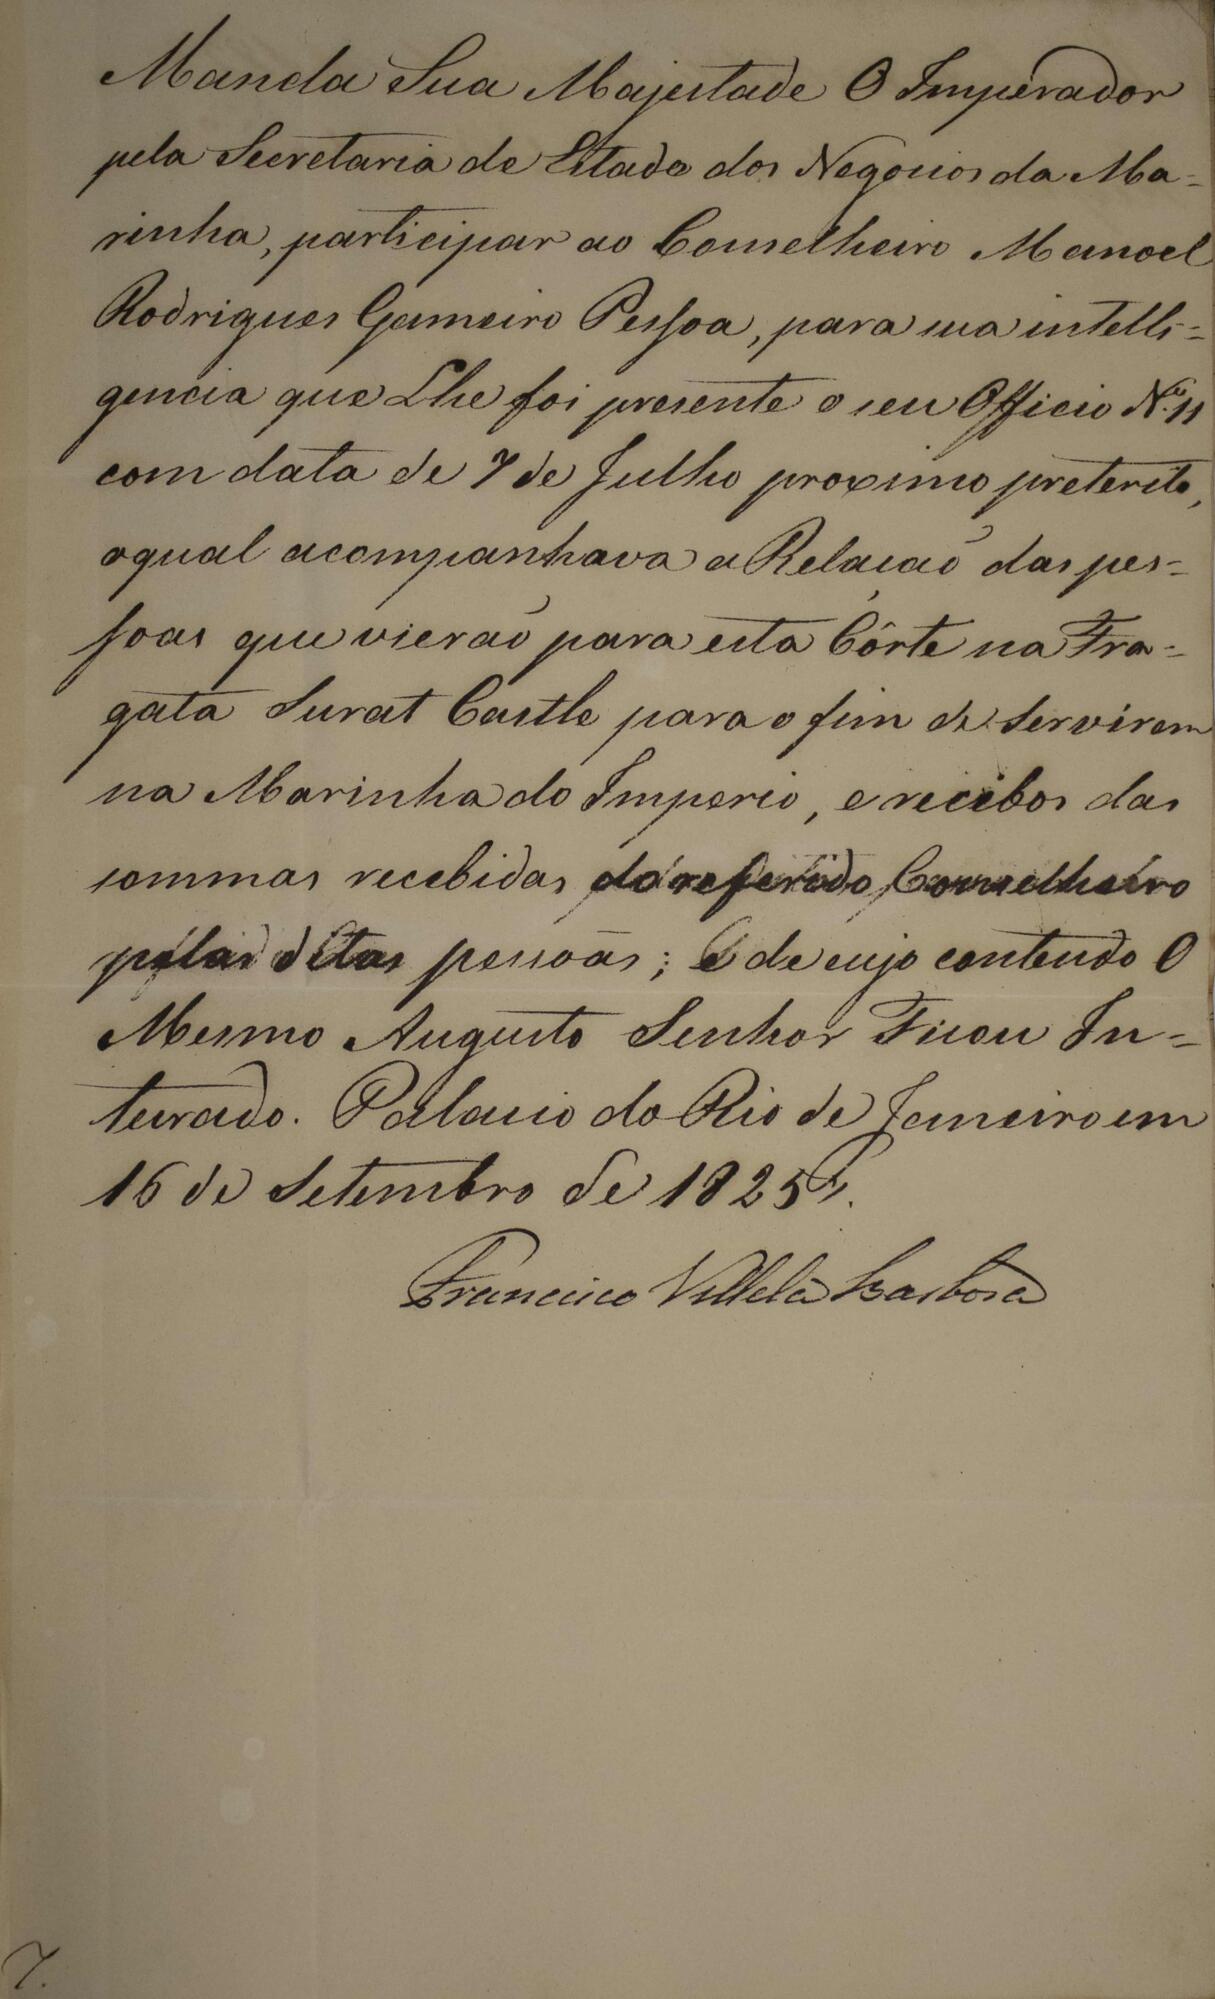 Manda Sua Majestade O Imperador
pela Secretaria de Estado dos Negocios da Ma=
rinha, participar ao Conselheiro Manoel
Rodrigues Gameiro Pessoa, para sua intelli=
gencia que Lhe foi presente o seu Officio N.º 11
com data de 7 de Julho proximo preterito,
oqual acompanhava a Relacaõ das pes=
soas que vieraõ para esta Côrte na Fra=
gata Surat Castle para o fim de servirem
na Marinha do Imperio, e recibos das
sommas recebidas do referido Conselheiro
pelas ditas pessoas; E de cujo contendo O
Mesmo Augusto Senhor Ficou In=
teirado. Palacio do Rio de Janeiro em
16 de Setembro de 1825
Francisco Villela Barboza
7.